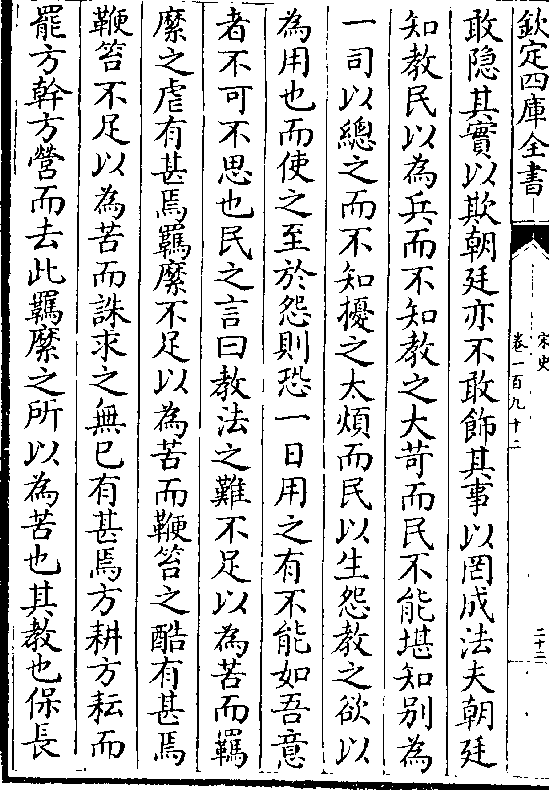 欽定四庫全書
宋史
卷一百九十二
二十二
敢隐其實以欺朝廷亦不敢飾其事以罔成法夫朝廷
知教民以為兵而不知教之大苛而民不能堪知别為
一司以總之而不知擾之太煩而民以生怨教之欲以
為用也而使之至於怨則恐一日用之有不能如吾意
者不可不思也民之言曰教法之難不足以為苦而羈
縻之虐有甚焉羈縻不足以為苦而鞭笞之酷有甚焉
鞭笞不足以為苦而誅求之無已有甚焉方耕方耘而
罷方幹方營而去此羈縻之所以為苦也其教也保長